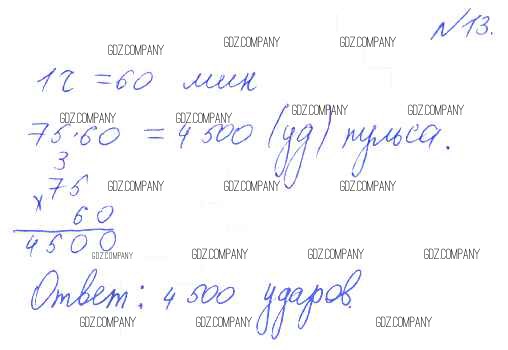 №13.
GDZ.COMPANY GDZ.COMPANY GDZ.COMPANY
1 ч = 60 мин
GDZ.COMPANY GDZ.COMPANY GDZ.COMPANY GDZ.COMPANY
75·60 = 4 500 (уд) пульса.
3
× 75
GDZ.COMPANY GDZ.COMPANY GDZ.COMPANY
60
4500
GDZ.COMPANY GDZ.COMPANY GDZ.COMPANY GDZ.COMPANY
Ответ: 4 500 ударов.
GDZ.COMPANY GDZ.COMPANY GDZ.COMPANY